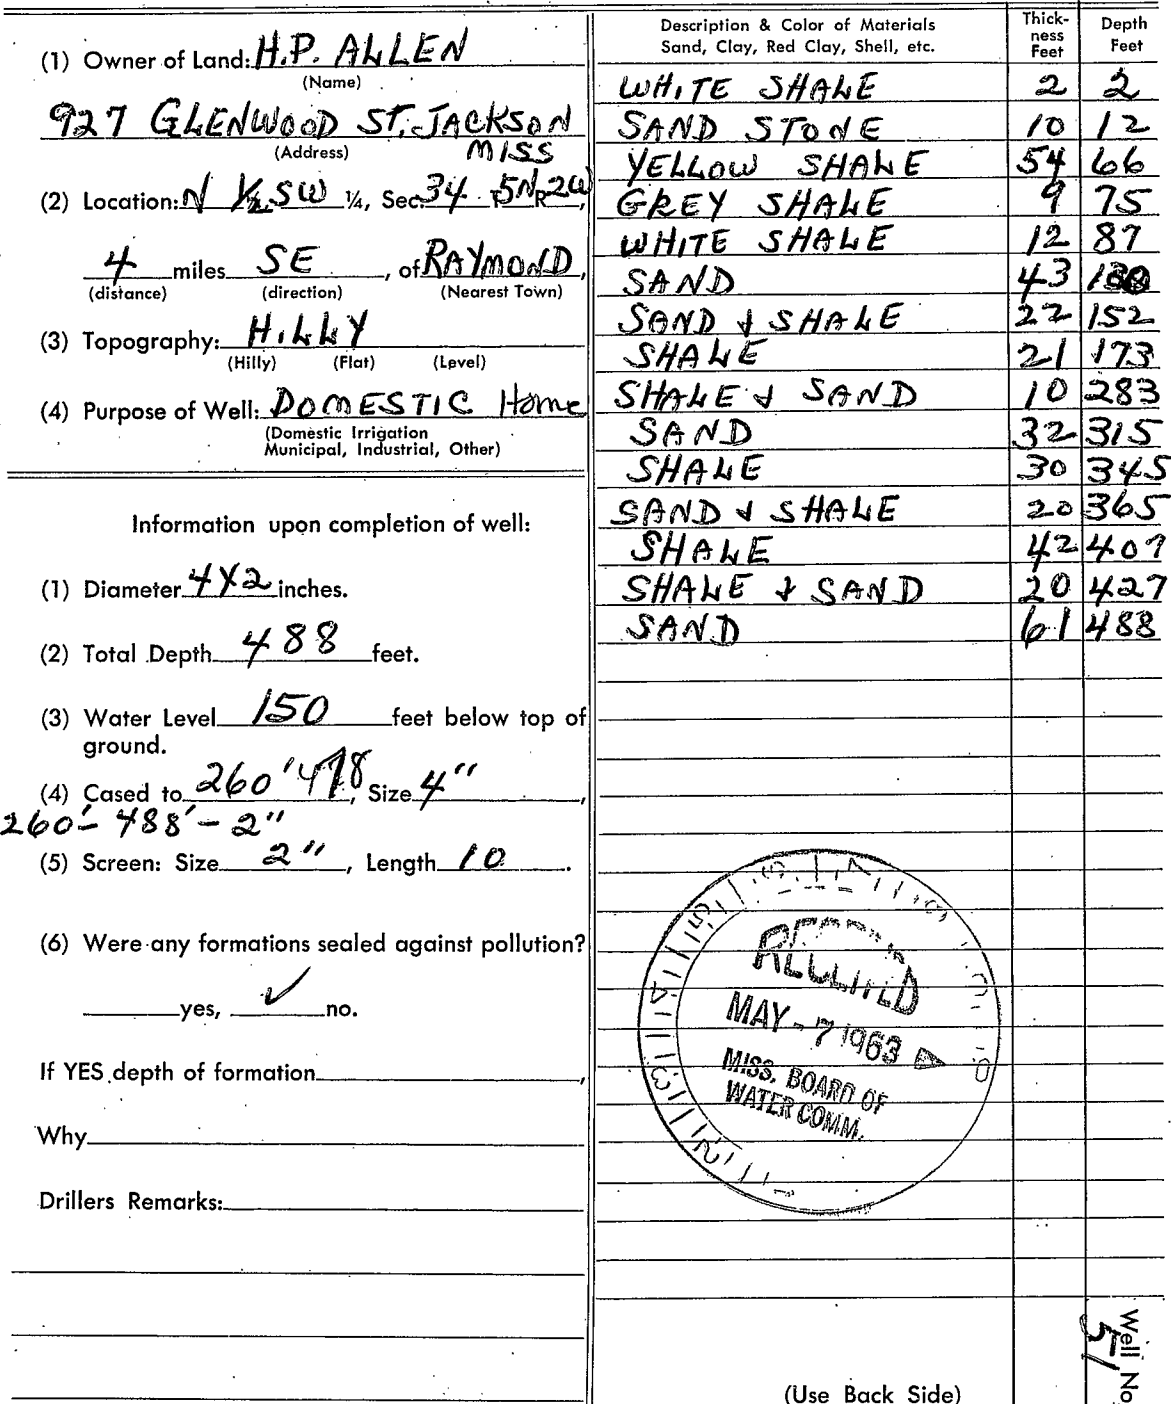 (1) Owner of Land: H.P. ALLEN
(Name)
927 GLENWOOD ST. JACKSON
(Address) MISS
(2) Location: N 1/2 SW ¼, Sec. 34 T5N R2W,
4 miles SE, of RAYMOND,
(distance) (direction) (Nearest Town)
(3) Topography: HILLY
(Hilly) (Flat) (Level)
(4) Purpose of Well: DOMESTIC Home
(Domestic Irrigation
Municipal, Industrial, Other)
Information upon completion of well:
(1) Diameter 4X2 inches.
(2) Total Depth 488 feet.
(3) Water Level 150 feet below top of
ground.
(4) Cased to 260' 478, Size 4",
260'- 488'- 2"
(5) Screen: Size 2", Length 10.
(6) Were any formations sealed against pollution?
yes, ✓ no.
If YES depth of formation,
Why
Drillers Remarks:
Description & Color of Materials
Sand, Clay, Red Clay, Shell, etc.
Thick-
ness
Feet
Depth
Feet
WHITE SHALE 2 2
SAND STONE 10 12
YELLOW SHALE 54 66
GREY SHALE 9 75
WHITE SHALE 12 87
SAND 43 130
SAND & SHALE 22 152
SHALE 21 173
SHALE & SAND 10 283
SAND 32 315
SHALE 30 345
SAND & SHALE 20 365
SHALE 42 407
SHALE & SAND 20 427
SAND 61 488
RECEIVED
MAY - 7 1963
MISS. BOARD OF
WATER COMM.
(Use Back Side)
Well No.
51